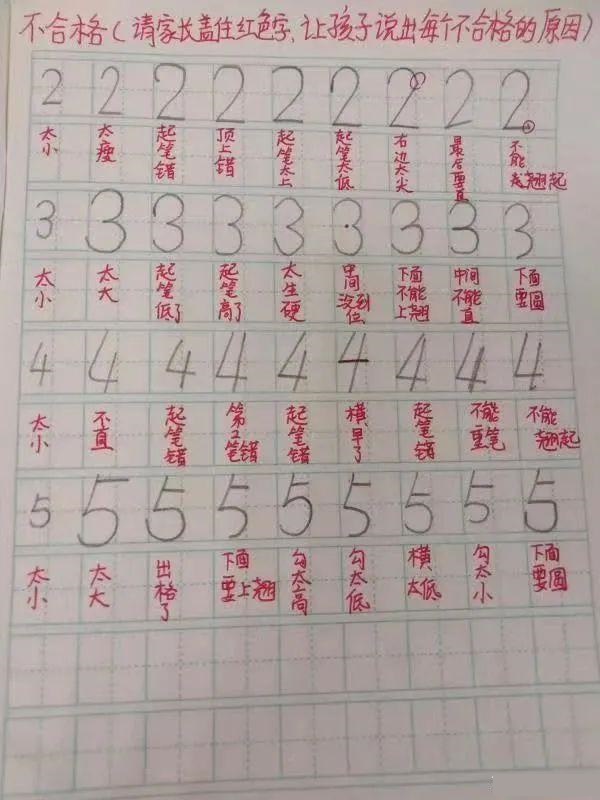 不合格(请家长盖住红色字、让孩子说出每个不合格的原因)
2 2 2 2 2 2 2 2 2
太小 太瘦 起笔错 顶上错 起笔太上 起笔太低 右边太尖 最后要直 不能翘起
3 3 3 3 3 3 3 3 3
太小 太大 起笔低了 起笔高了 太生硬 中间没到位 下面不能上翘 中间不能直 下面要圆
4 4 4 4 4 4 4 4 4
太小 不直 起笔错 第2笔错 起笔错 横早了 起笔错 不能重笔 不能翘起
5 5 5 5 5 5 5 5 5
太小 太大 出格了 下面要上翘 勾太高 勾太低 横太低 勾太小 下面要圆